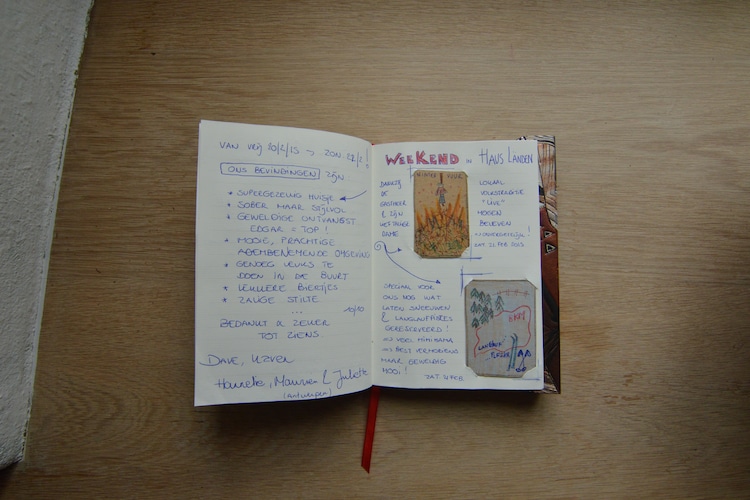 VAN VRIJ
ONS BEVINDINGEN ZIJN
* SUPERGEZELLIG HUISJE
* SOBER MAAR STIJLVOL
* GEWELDIGE ONTVANGST
EDGAR = TOP!
* MOOIE, PRACHTIGE
ADEMBENEMENDE OMGEVING
* GENOEG LEUKS TE
DOEN IN DE BUURT
* LEKKERE BIERTJES
* ZALIGE STILTE
...
10/10
BEDANKT & ZEKER
TOT ZIENS
DAVE,
Hanneke, & Juliette
(Antwerpen)
WEEKEND IN HAUS LANDEN
DANKZIJ
DE
GASTHEER
& ZIJN
DAME
WINTER VUUR
LOKAAL
"LIVE"
MOGEN
BELEVEN
ZAT 21 FEB 2015
SPECIAAL VOOR
ONS NOG WAT
LATEN SNEEUWEN
& LANGLAUFPISTES
GERESERVEERD!
=> VEEL
=> BEST VERMOEIEND
MAAR GEWELDIG
MOOI!